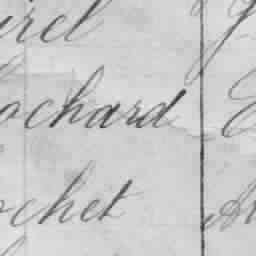 irel
ochard
ochet